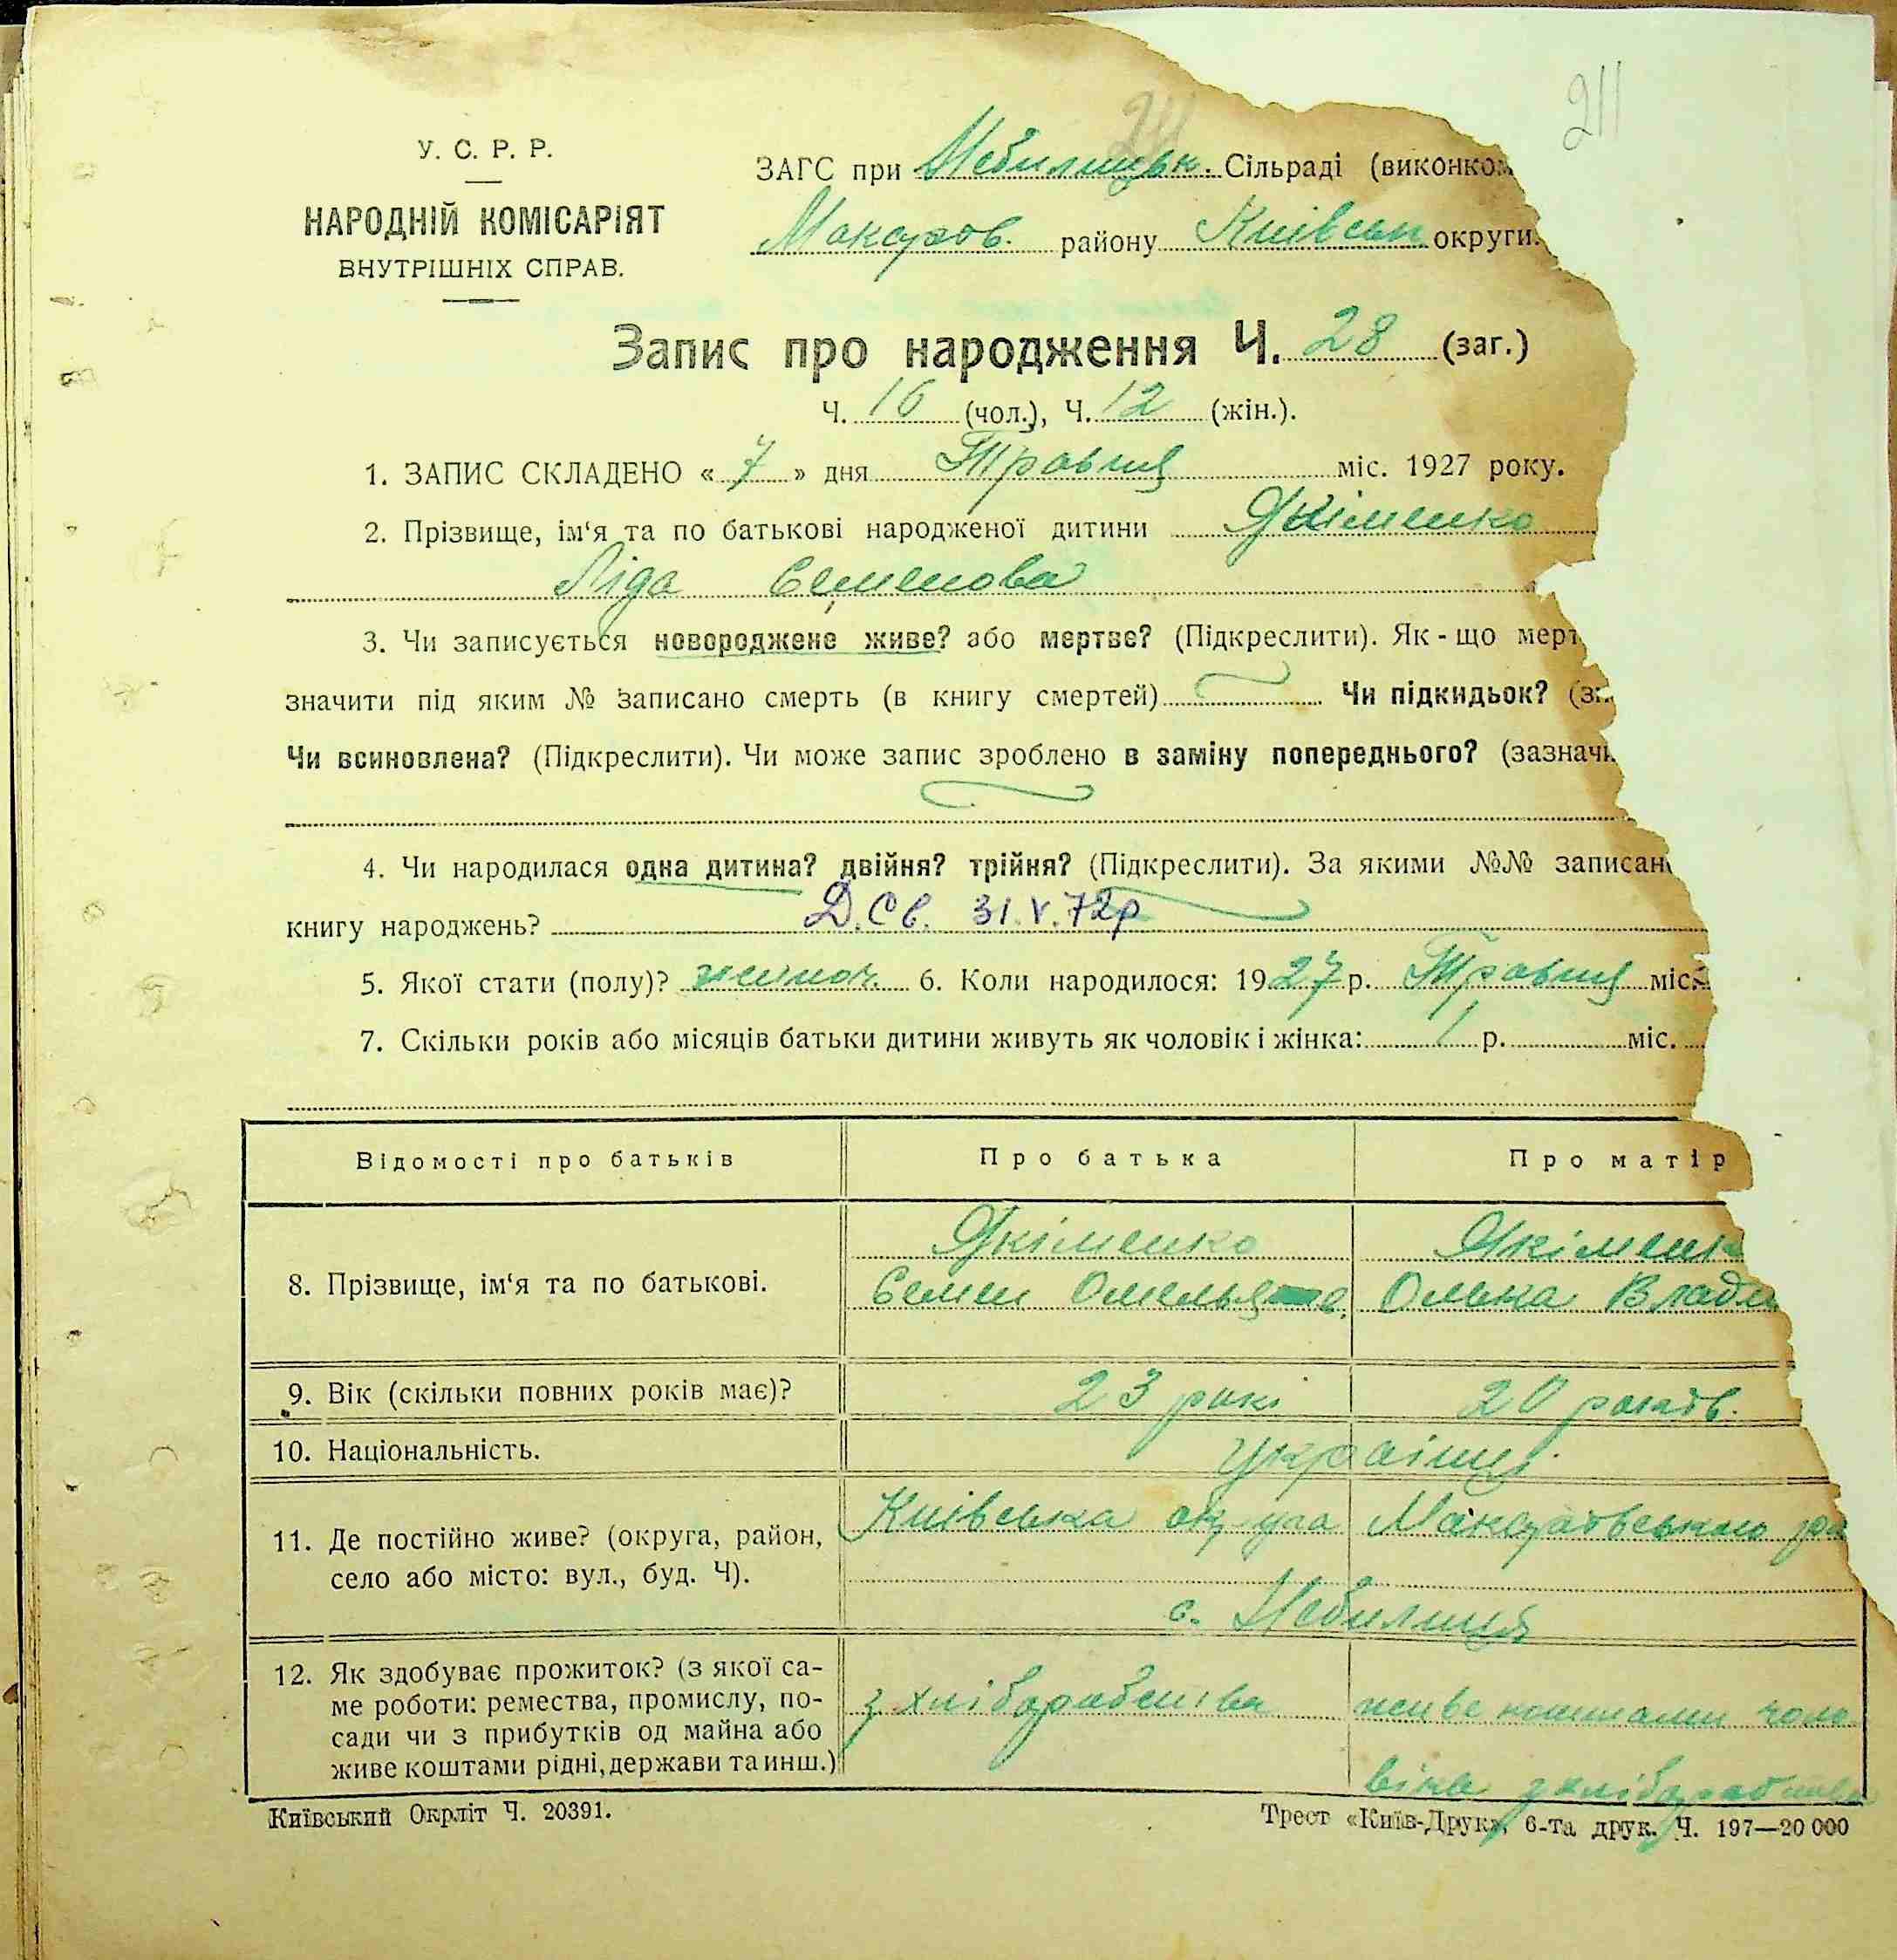 211
211
У. С. Р. Р.
НАРОДНІЙ КОМІСАРІЯТ
ВНУТРІШНІХ СПРАВ.
ЗАГС при Небилицьк. Сільраді (виконком
Макаров. району Київськ округи.
Запис про народження Ч. 28 (заг.)
Ч. 16 (чол.), Ч. 12 (жін.).
1. ЗАПИС СКЛАДЕНО « 7 » дня Травня міс. 1927 року.
2. Прізвище, ім‘я та по батькові народженої дитини Якіменко
Ліда Семенова
3. Чи записується новороджене живе? або мертве? (Підкреслити). Як-що мерт
значити під яким № записано смерть (в книгу смертей) Чи підкидьок? (за
Чи всиновлена? (Підкреслити). Чи може запис зроблено в заміну попереднього? (зазначи
4. Чи народилася одна дитина? двійня? трійня? (Підкреслити). За якими №№ записан
книгу народжень? Д.Св. 31.V.72р
5. Якої стати (полу)? жіноч. 6. Коли народилося: 1927 р. Травня міс.
7. Скільки років або місяців батьки дитини живуть як чоловік і жінка: 1 р. міс.
Відомості про батьків Про батька Про матір
8. Прізвище, ім‘я та по батькові. Якіменко Якіменк
Семен Омелья в. Олька Влади
9. Вік (скільки повних років має)? 23 рокі 20 років.
10. Національність. Українці.
11. Де постійно живе? (округа, район, Київська округа Макаровського ра
село або місто: вул., буд. Ч).
с. Небилиця
12. Як здобуває прожиток? (з якої са-
ме роботи: ремества, промислу, по- з хліборобства живе коштами чоло
сади чи з прибутків од майна або
живе коштами рідні, держави та инш.) віка з хліборобства
Київський Окрліт Ч. 20391. Трест «Київ-Друк», 6-та друк. Ч. 197—20 000